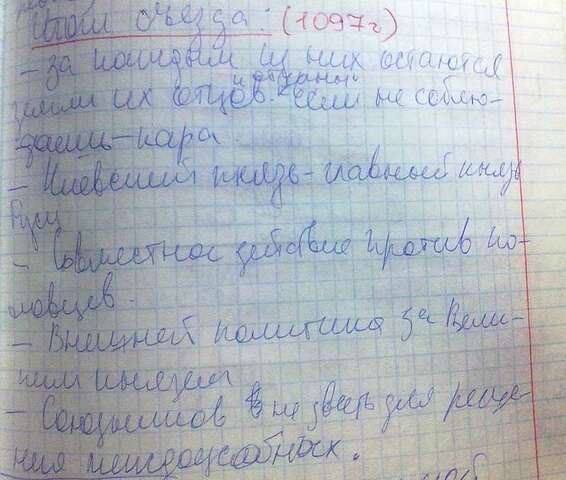 Итоги съезда: (1097г)
– за каждым из них остаются
земли их отцов. если не соблю-
даешь – кара.
– Киевский князь – главный князь
Руси
– Совместное действие против по-
ловцев.
– Внешней политика за Вели-
ким князем
– Союзников не звать для реше-
ния междоусобных.